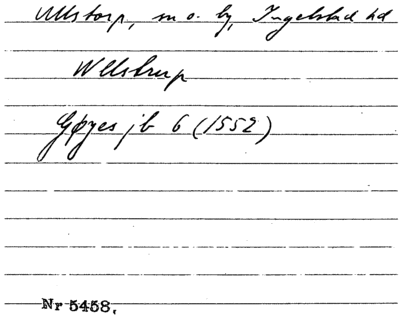 Ullstorp, sn o. by, Ingelstad hd
Wllstrup
Gøyes jb 6 (1552)
Nr 5458.